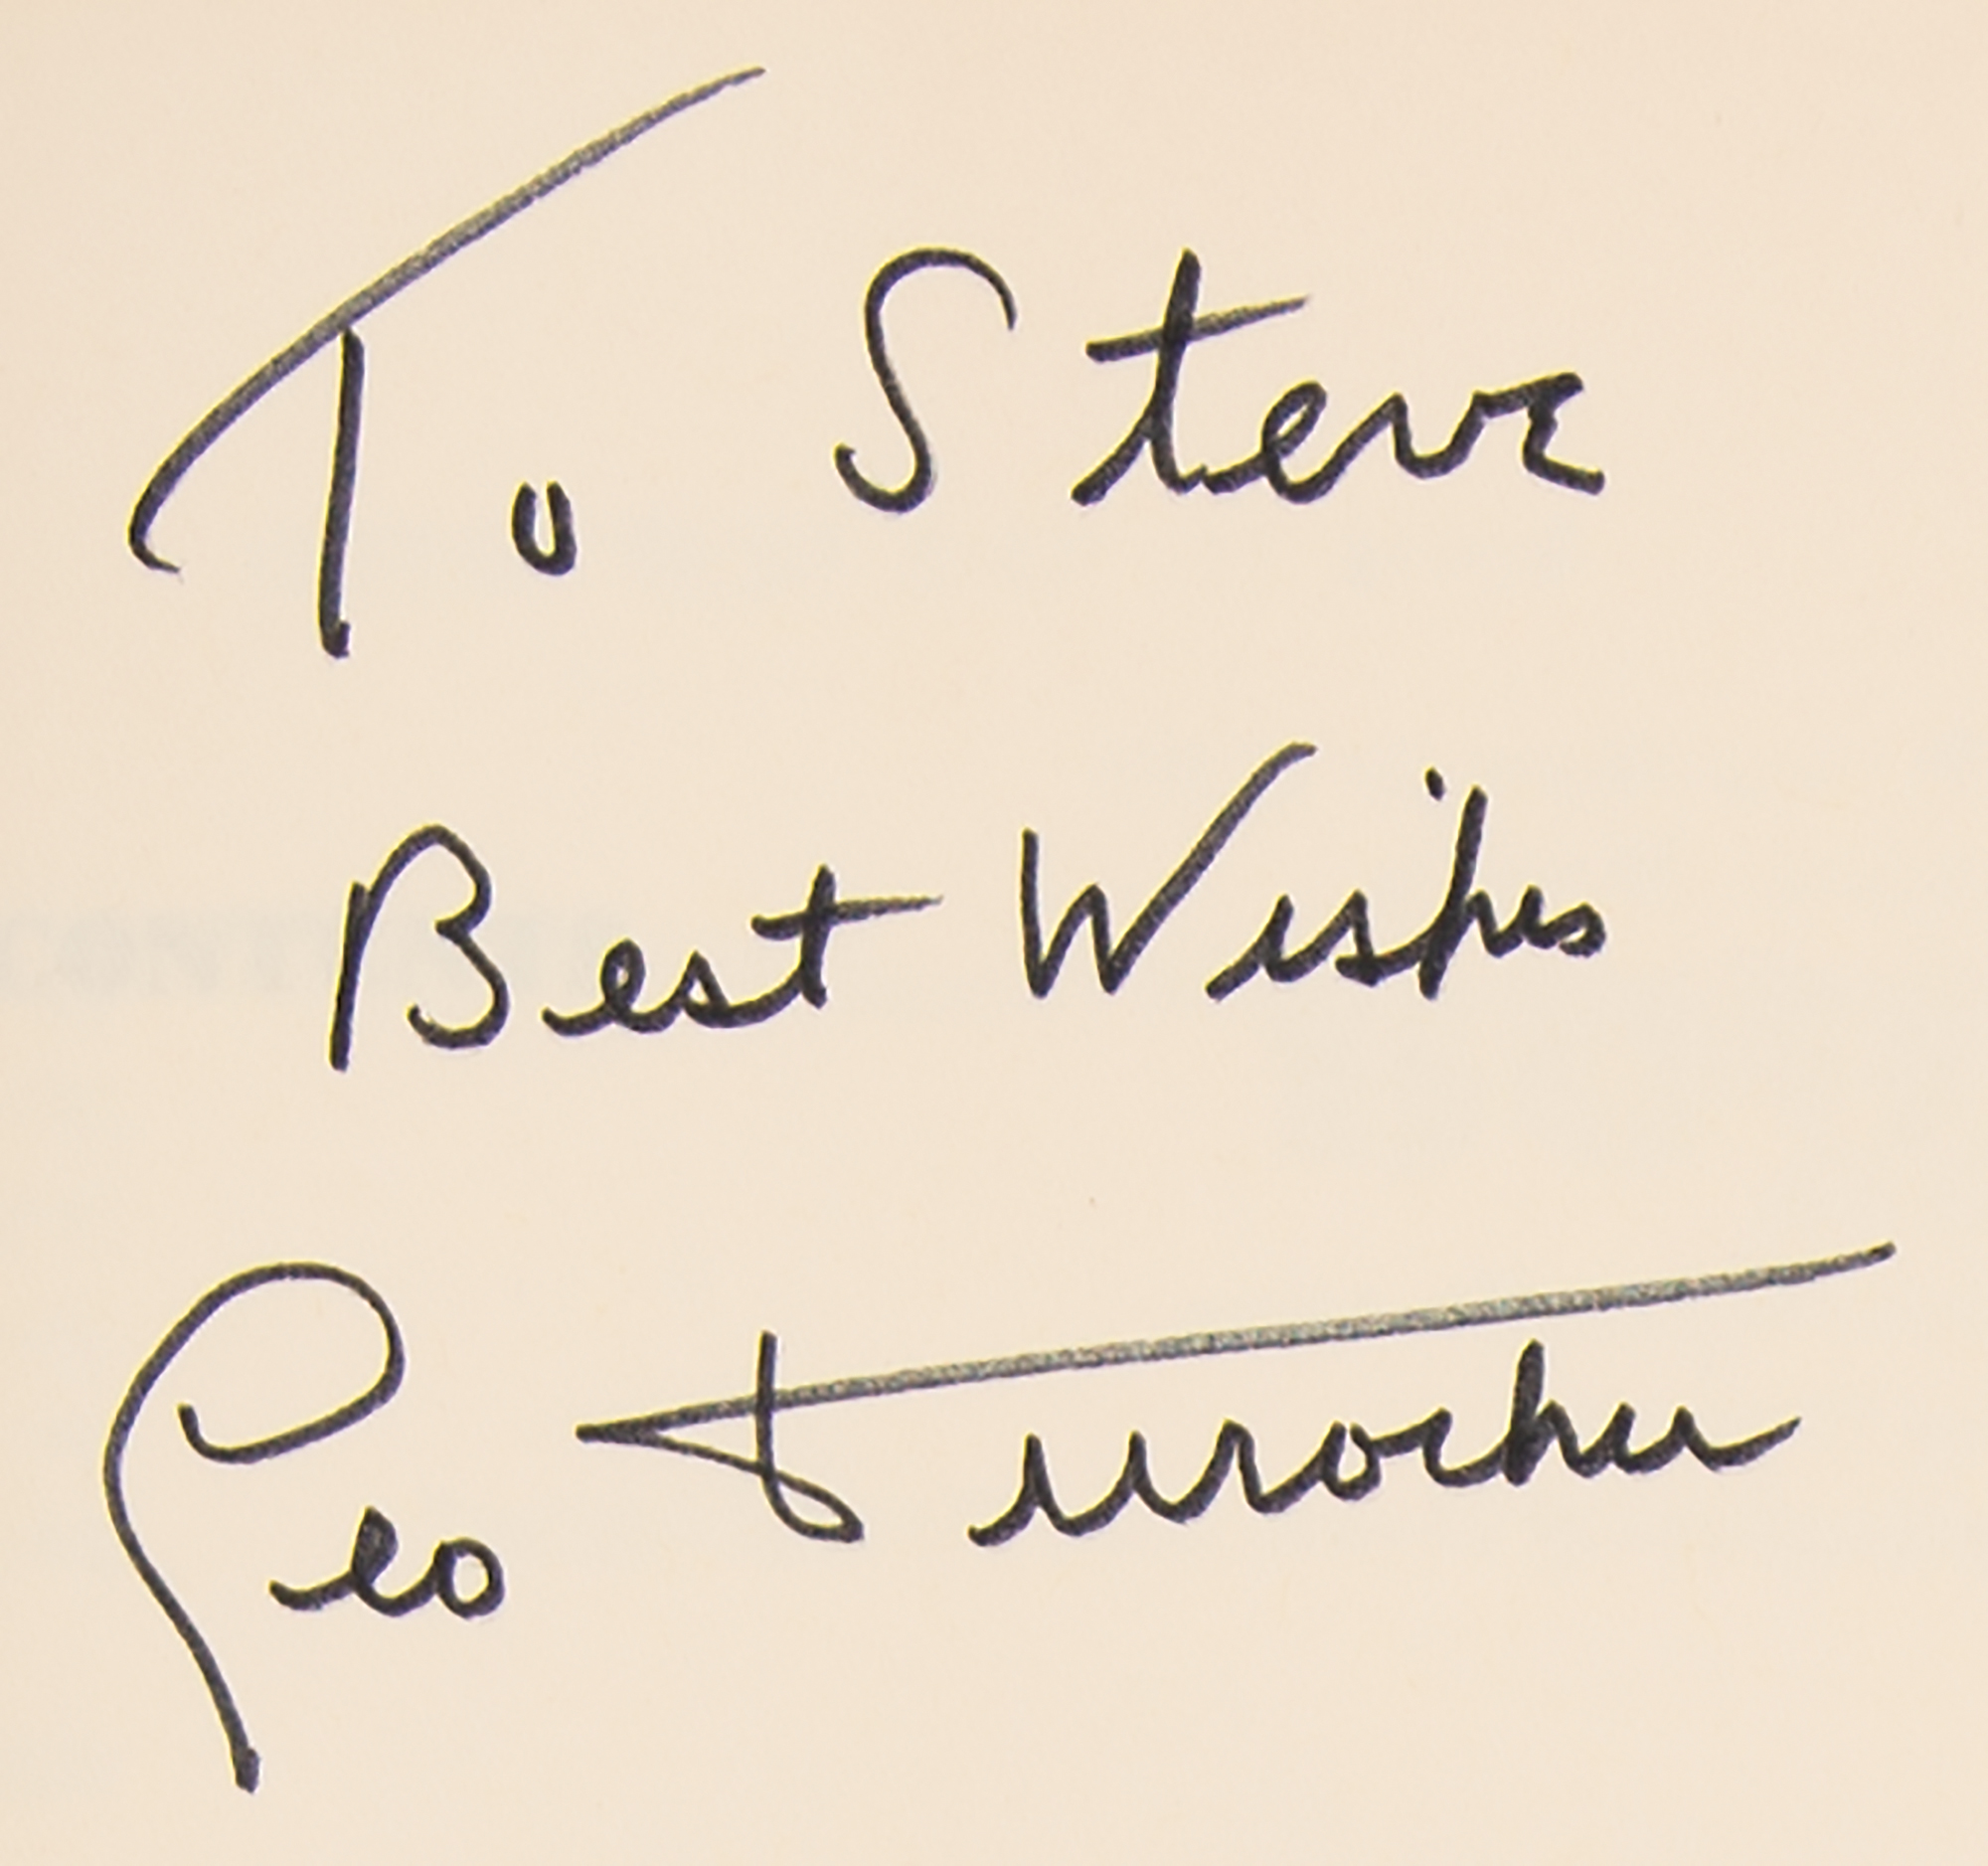 To Steve
Best Wishes
Leo Durocher